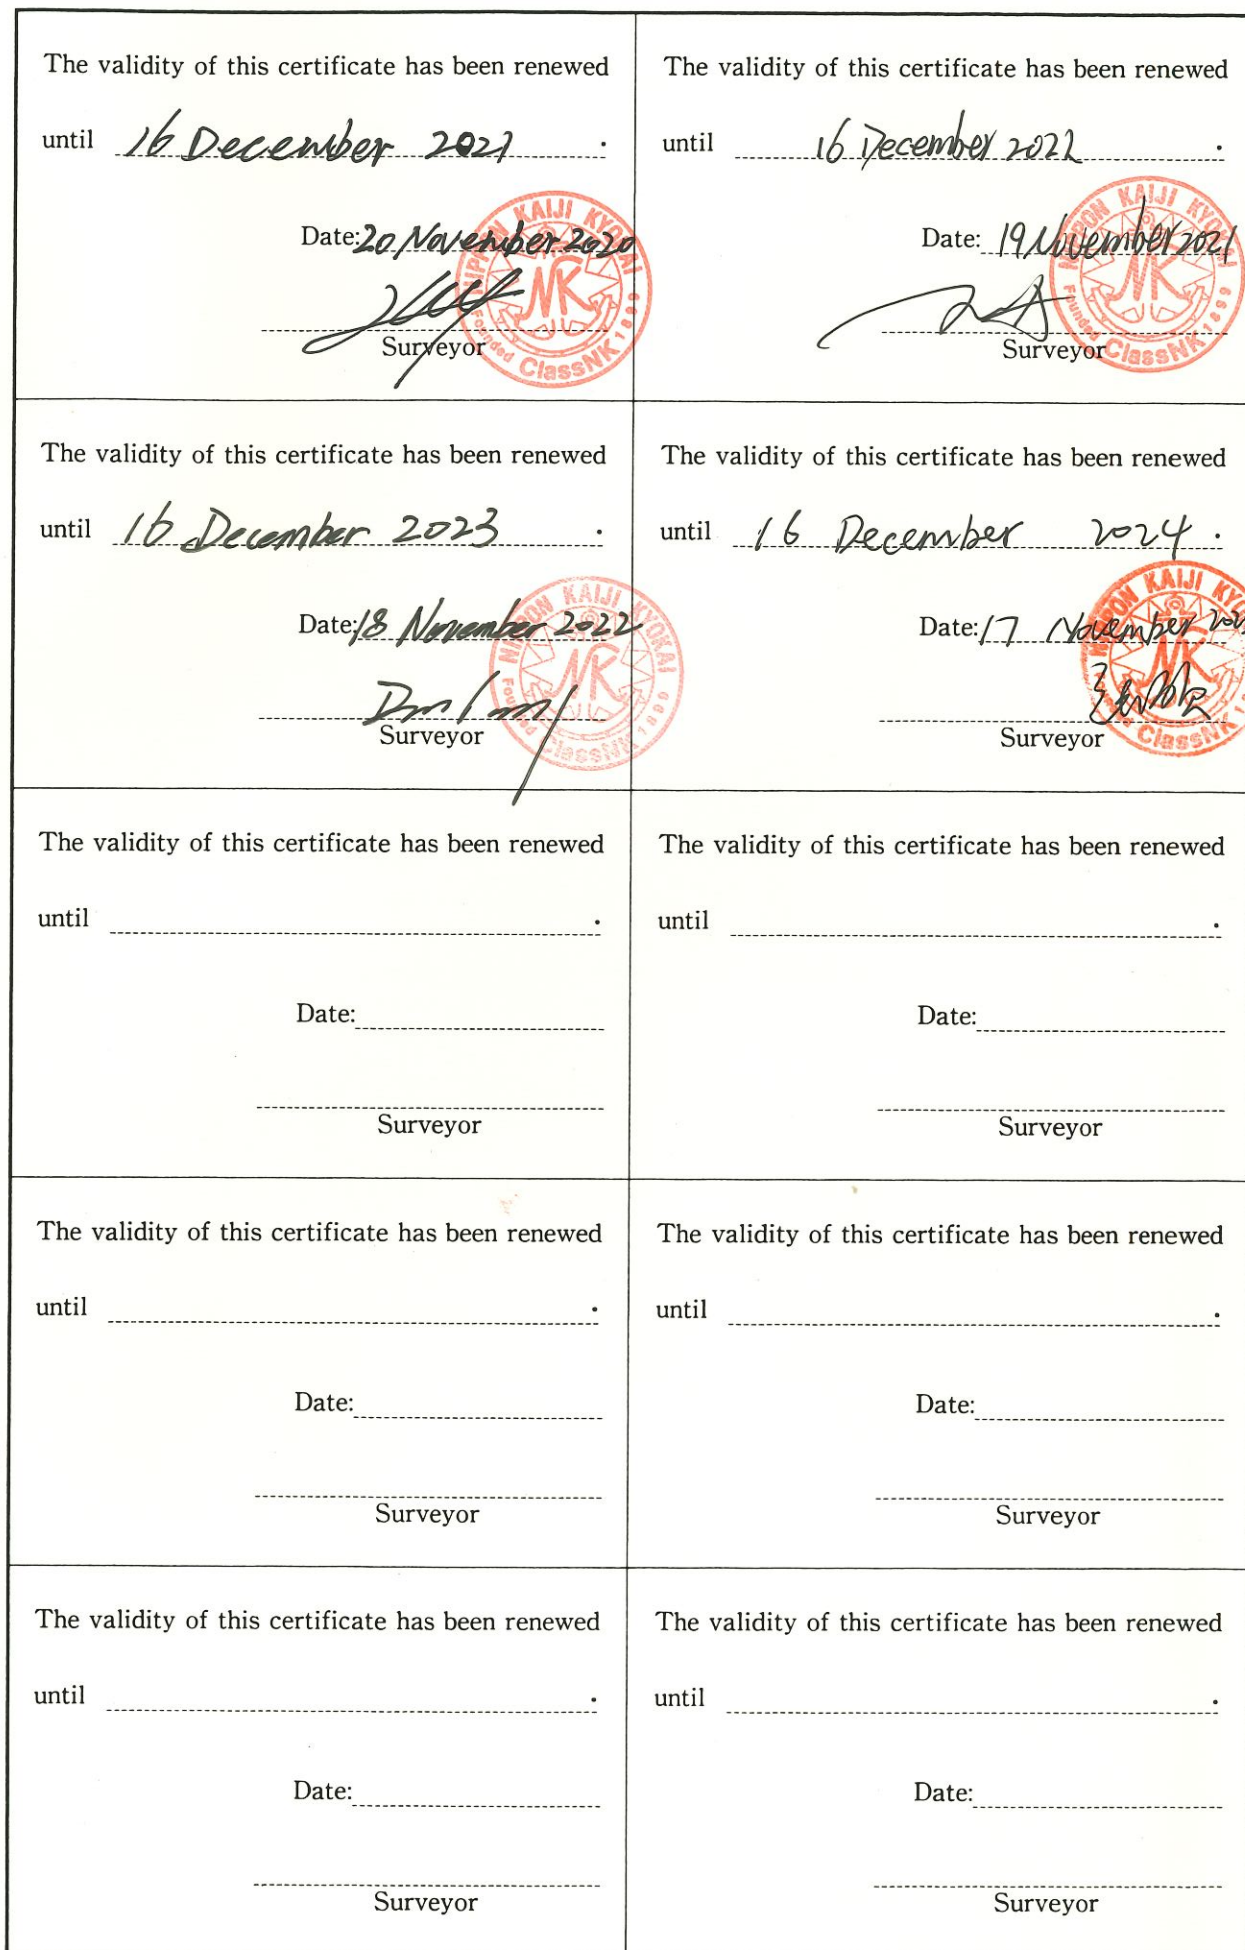 The validity of this certificate has been renewed
until 16 December 2021 .
Date: 20 November 2020
Surveyor
NIPPON KAIJI KYOKAI
NK
Founded ClassNK 1899
The validity of this certificate has been renewed
until 16 December 2022 .
Date: 19 November 2021
Surveyor
NIPPON KAIJI KY
NK
Founded ClassNK 1899
The validity of this certificate has been renewed
until 16 December 2023 .
Date: 18 November 2022
Surveyor
NIPPON KAIJI KYOKAI
NK
Founded ClassNK 1899
The validity of this certificate has been renewed
until 16 December 2024 .
Date: 17 November
Surveyor
NIPPON KAIJI KY
NK
ClassNK
The validity of this certificate has been renewed
until .
Date:
Surveyor
The validity of this certificate has been renewed
until .
Date:
Surveyor
The validity of this certificate has been renewed
until .
Date:
Surveyor
The validity of this certificate has been renewed
until .
Date:
Surveyor
The validity of this certificate has been renewed
until .
Date:
Surveyor
The validity of this certificate has been renewed
until .
Date:
Surveyor